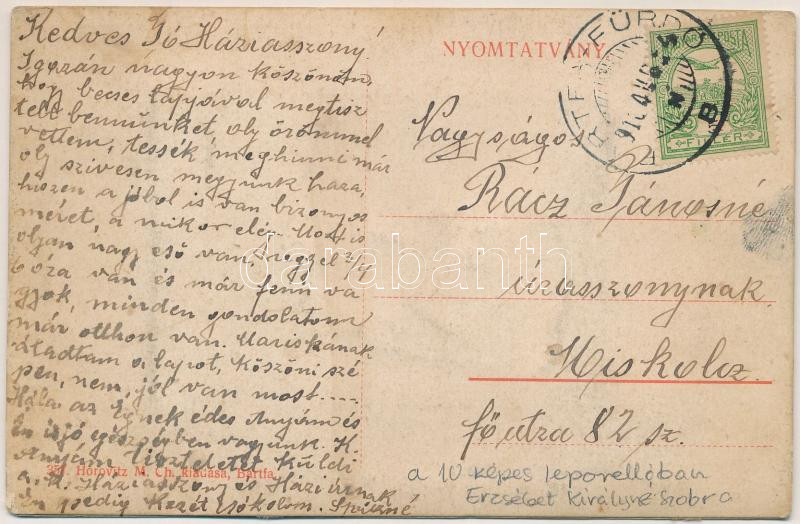 Kedves Jó Háziasszony!
Igazán nagyon köszönöm,
hogy becses lapjával megtisz
telt bennünket, oly örömmel
vettem, tessék meghinni már
oly szivesen megyünk haza,
hiszen a jóból is van bizonyos
méret, a mikor elég. Most is
olyan nagy eső van, reggel
6 óra van és már fenn va
gyok, minden gondolatom
már otthon van. Mariskának
átadtam a lapot, köszöni szé
pen, nem jól van most.....
Hála az Égnek édes Anyám és
én is jó egészségben vagyunk. K.
Anyám tiszteletét küldi
a K. Háziasszony és Házi úrnak
én pedig kezét csókolom.
NYOMTATVÁNY
BÁRTFA-FÜRDŐ
B
MAGYAR POSTA
FILLÉR
Nagyságos
Rácz Jánosné
úrasszonynak
Miskolcz
fő utza 82 sz.
Horovitz M. Ch. kiadása, Bártfa.
a 10 képes leporellóban
Erzsébet királyné szobra
darabanth